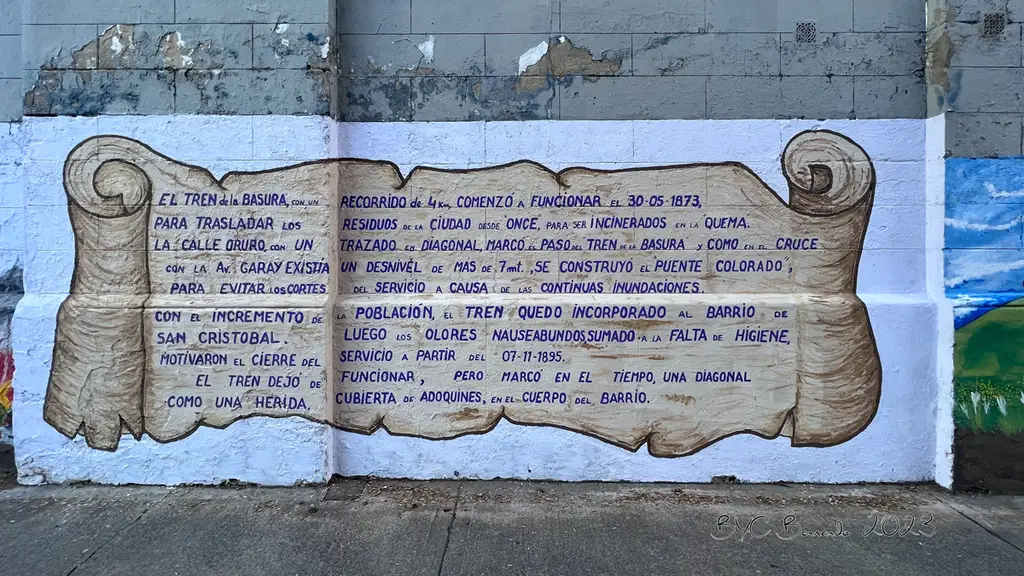 EL TREN de la BASURA, CON UN RECORRIDO de 4 Km, COMENZÓ A FUNCIONAR EL 30-05-1873,
PARA TRASLADAR LOS RESIDUOS DE LA CIUDAD DESDE ONCE, PARA SER INCINERADOS EN LA QUEMA.
LA CALLE ORURO, CON UN TRAZADO EN DIAGONAL, MARCÓ EL PASO DEL TREN DE LA BASURA Y COMO EN EL CRUCE
CON LA AV. GARAY EXISTÍA UN DESNIVEL DE MÁS DE 7mt., SE CONSTRUYO EL "PUENTE COLORADO",
PARA EVITAR LOS CORTES DEL SERVICIO A CAUSA DE LAS CONTINUAS INUNDACIONES.
CON EL INCREMENTO DE LA POBLACIÓN, EL TREN QUEDO INCORPORADO AL BARRIO DE
SAN CRISTOBAL. LUEGO LOS OLORES NAUSEABUNDOS SUMADO A LA FALTA DE HIGIENE,
MOTIVARON EL CIERRE DEL SERVICIO A PARTIR DEL 07-11-1895.
EL TREN DEJÓ DE FUNCIONAR, PERO MARCÓ EN EL TIEMPO, UNA DIAGONAL
COMO UNA HERIDA, CUBIERTA DE ADOQUINES, EN EL CUERPO DEL BARRIO.
BYC Bernardo 2023